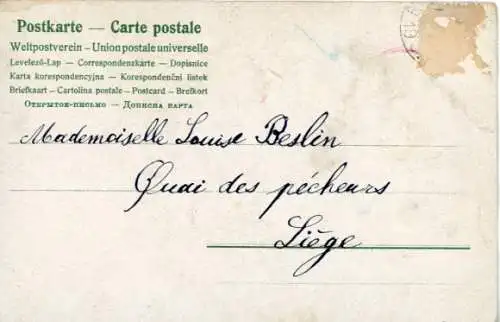 Postkarte — Carte postale
Weltpostverein – Union postale universelle
Levelező-Lap — Correspondenzkarte — Dopisnice
Karta korespondencyjna — Korespondenční lístek
Briefkaart – Cartolina postale – Postcard – Brefkort
Открытое-письмо — Дописна карта
Mademoiselle Louise Beslin
Quai des pécheurs
Liège